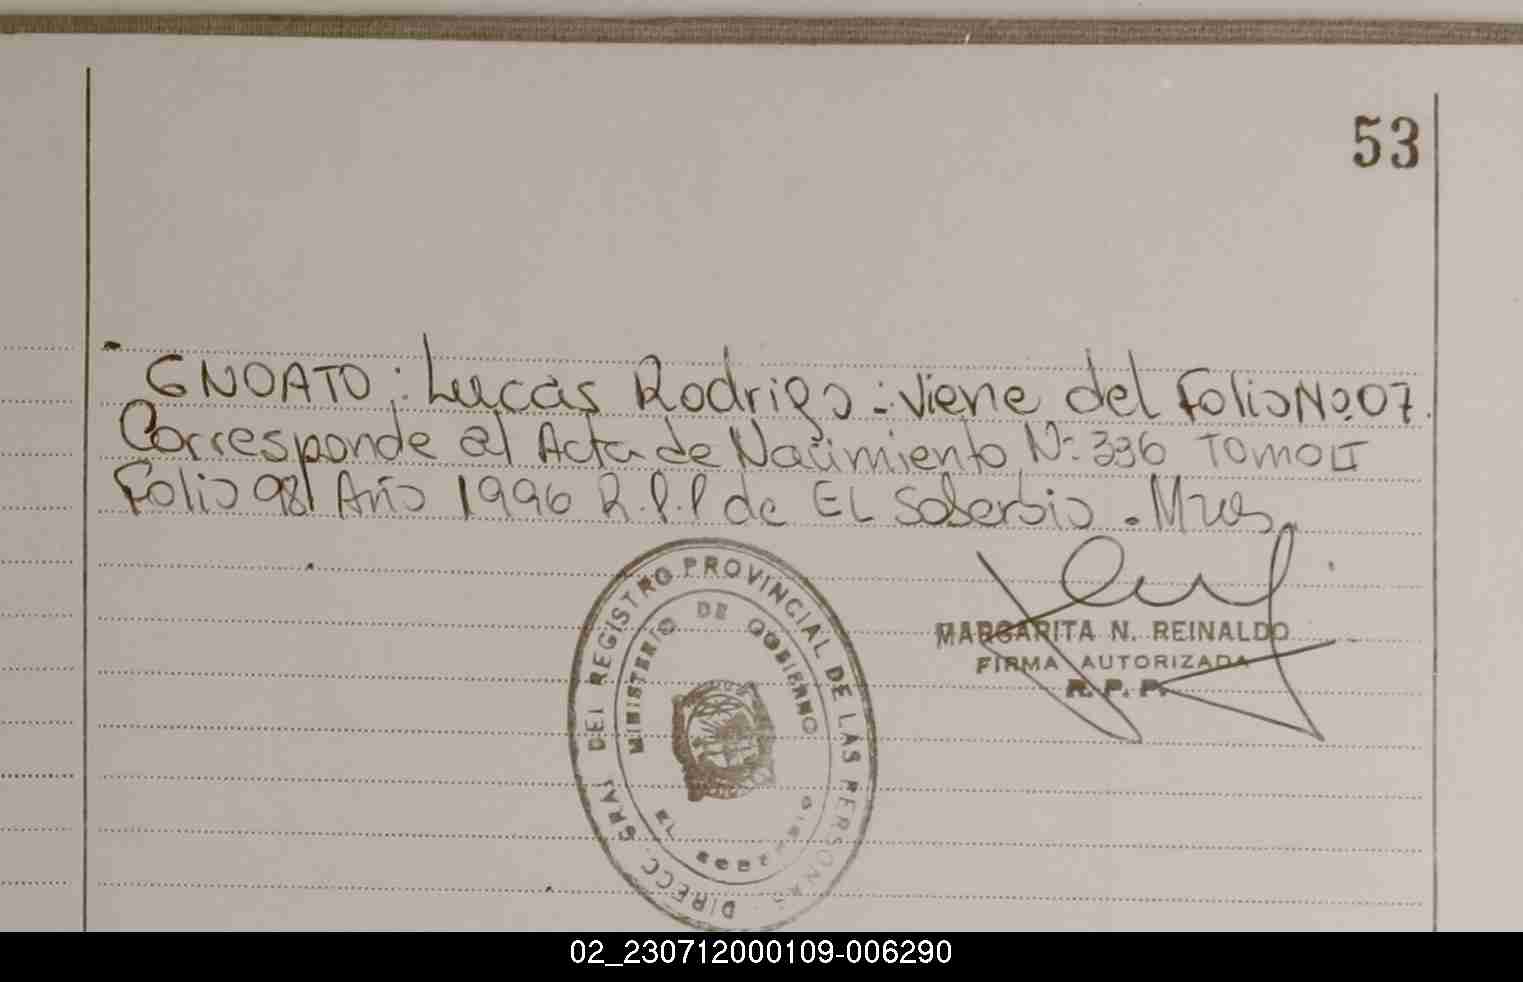 53
GNOATO: Lucas Rodrigo: viene del Folio Nº 07.
Corresponde al Acta de Nacimiento Nº 336 TOMO II
Folio 98 Año 1996 R.P.P de EL Soberbio. Mnes.
MARGARITA N. REINALDO
FIRMA AUTORIZADA
R. P. P.
DIRECC. GRAL DEL REGISTRO PROVINCIAL DE LAS PERSONAS
MINISTERIO DE GOBIERNO
EL SOBERBIO
02_230712000109-006290